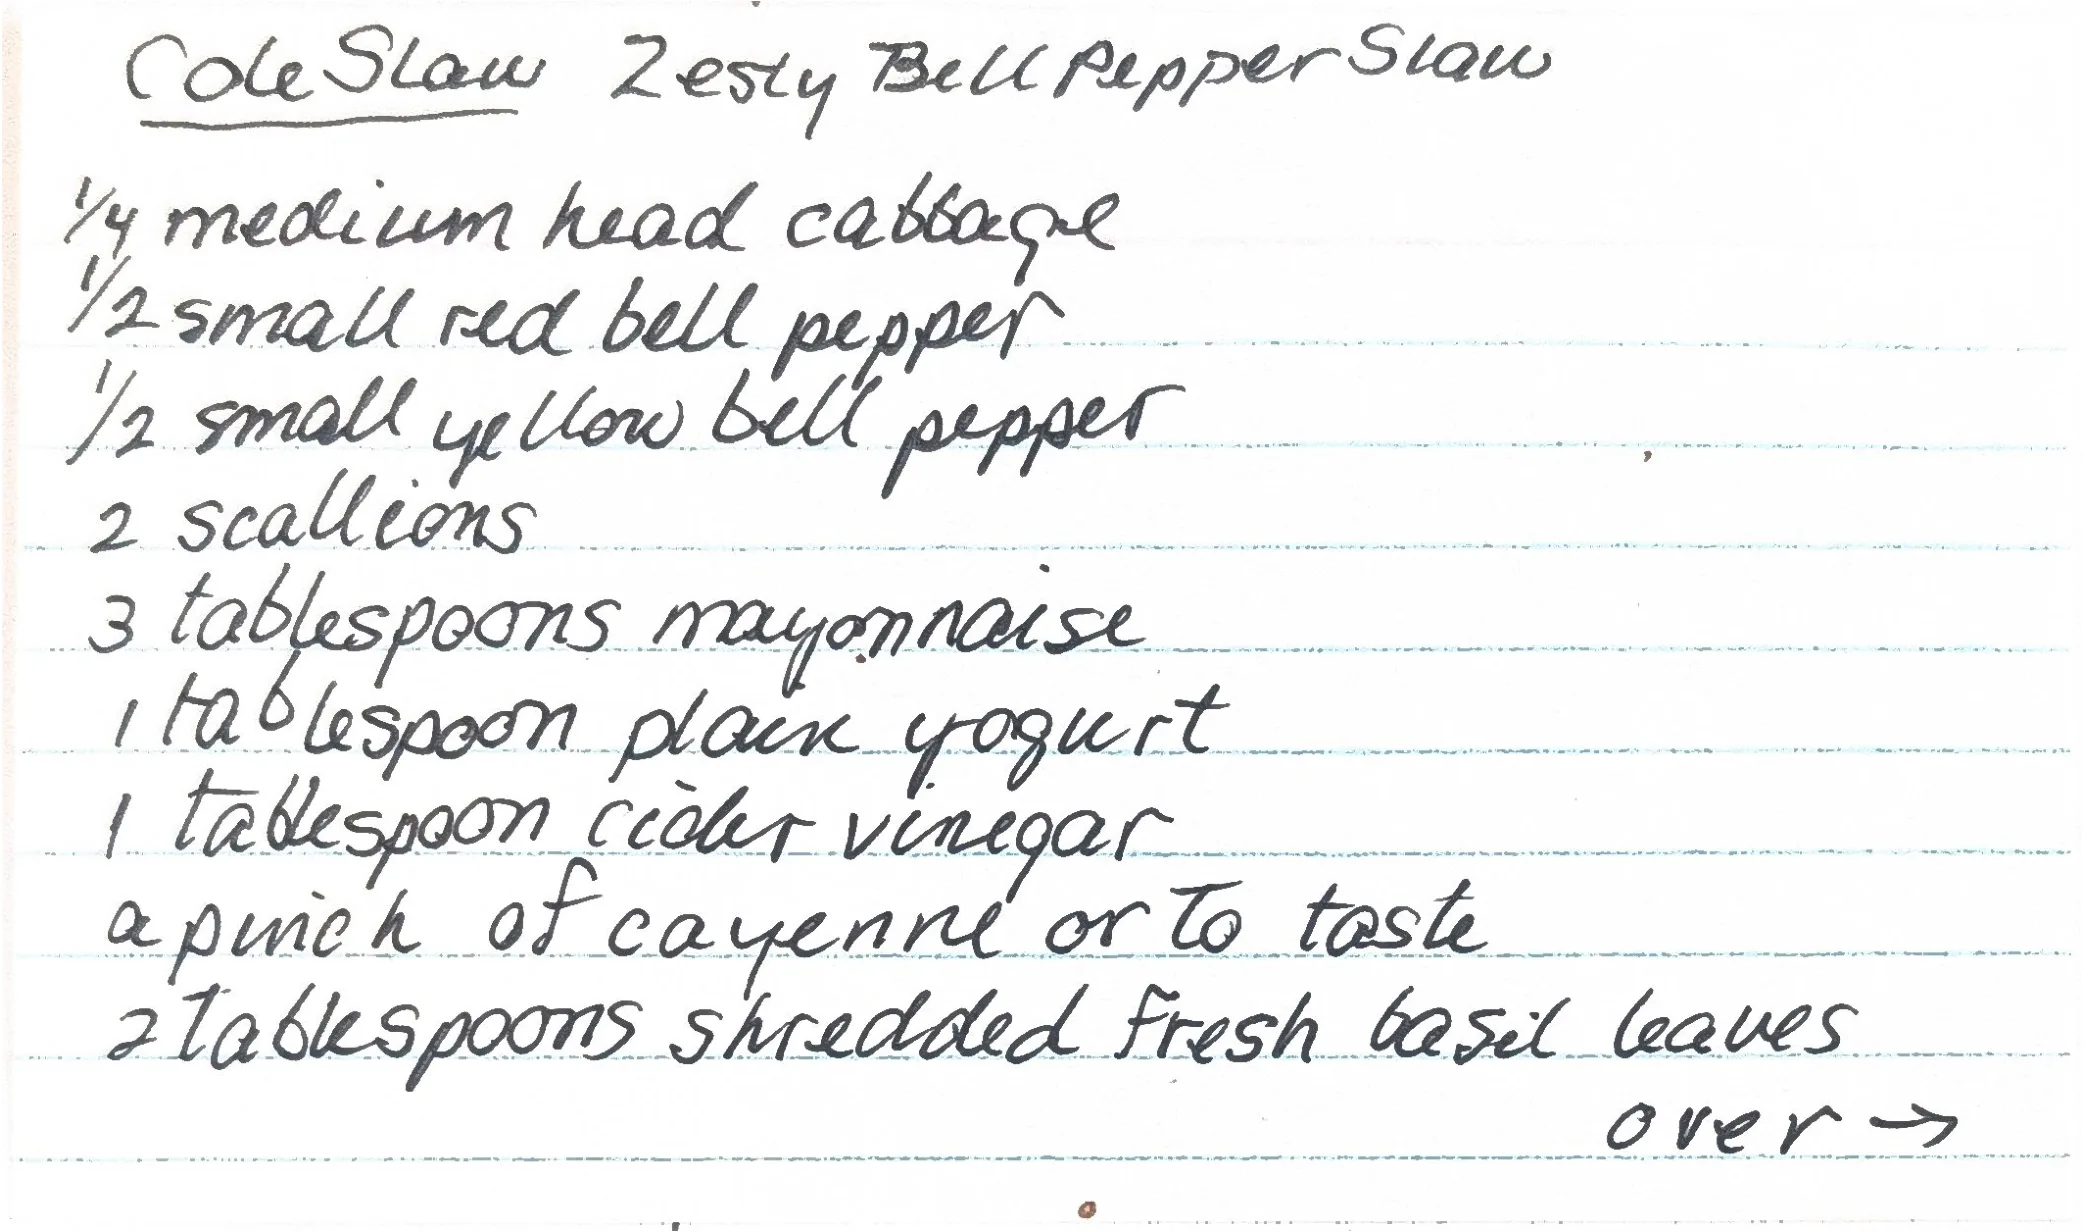 Cole Slaw Zesty Bell Pepper Slaw
1/4 medium head cabbage
1/2 small red bell pepper
1/2 small yellow bell pepper
2 scallions
3 tablespoons mayonnaise
1 tablespoon plain yogurt
1 tablespoon cider vinegar
a pinch of cayenne or to taste
2 tablespoons shredded fresh basil leaves
over →